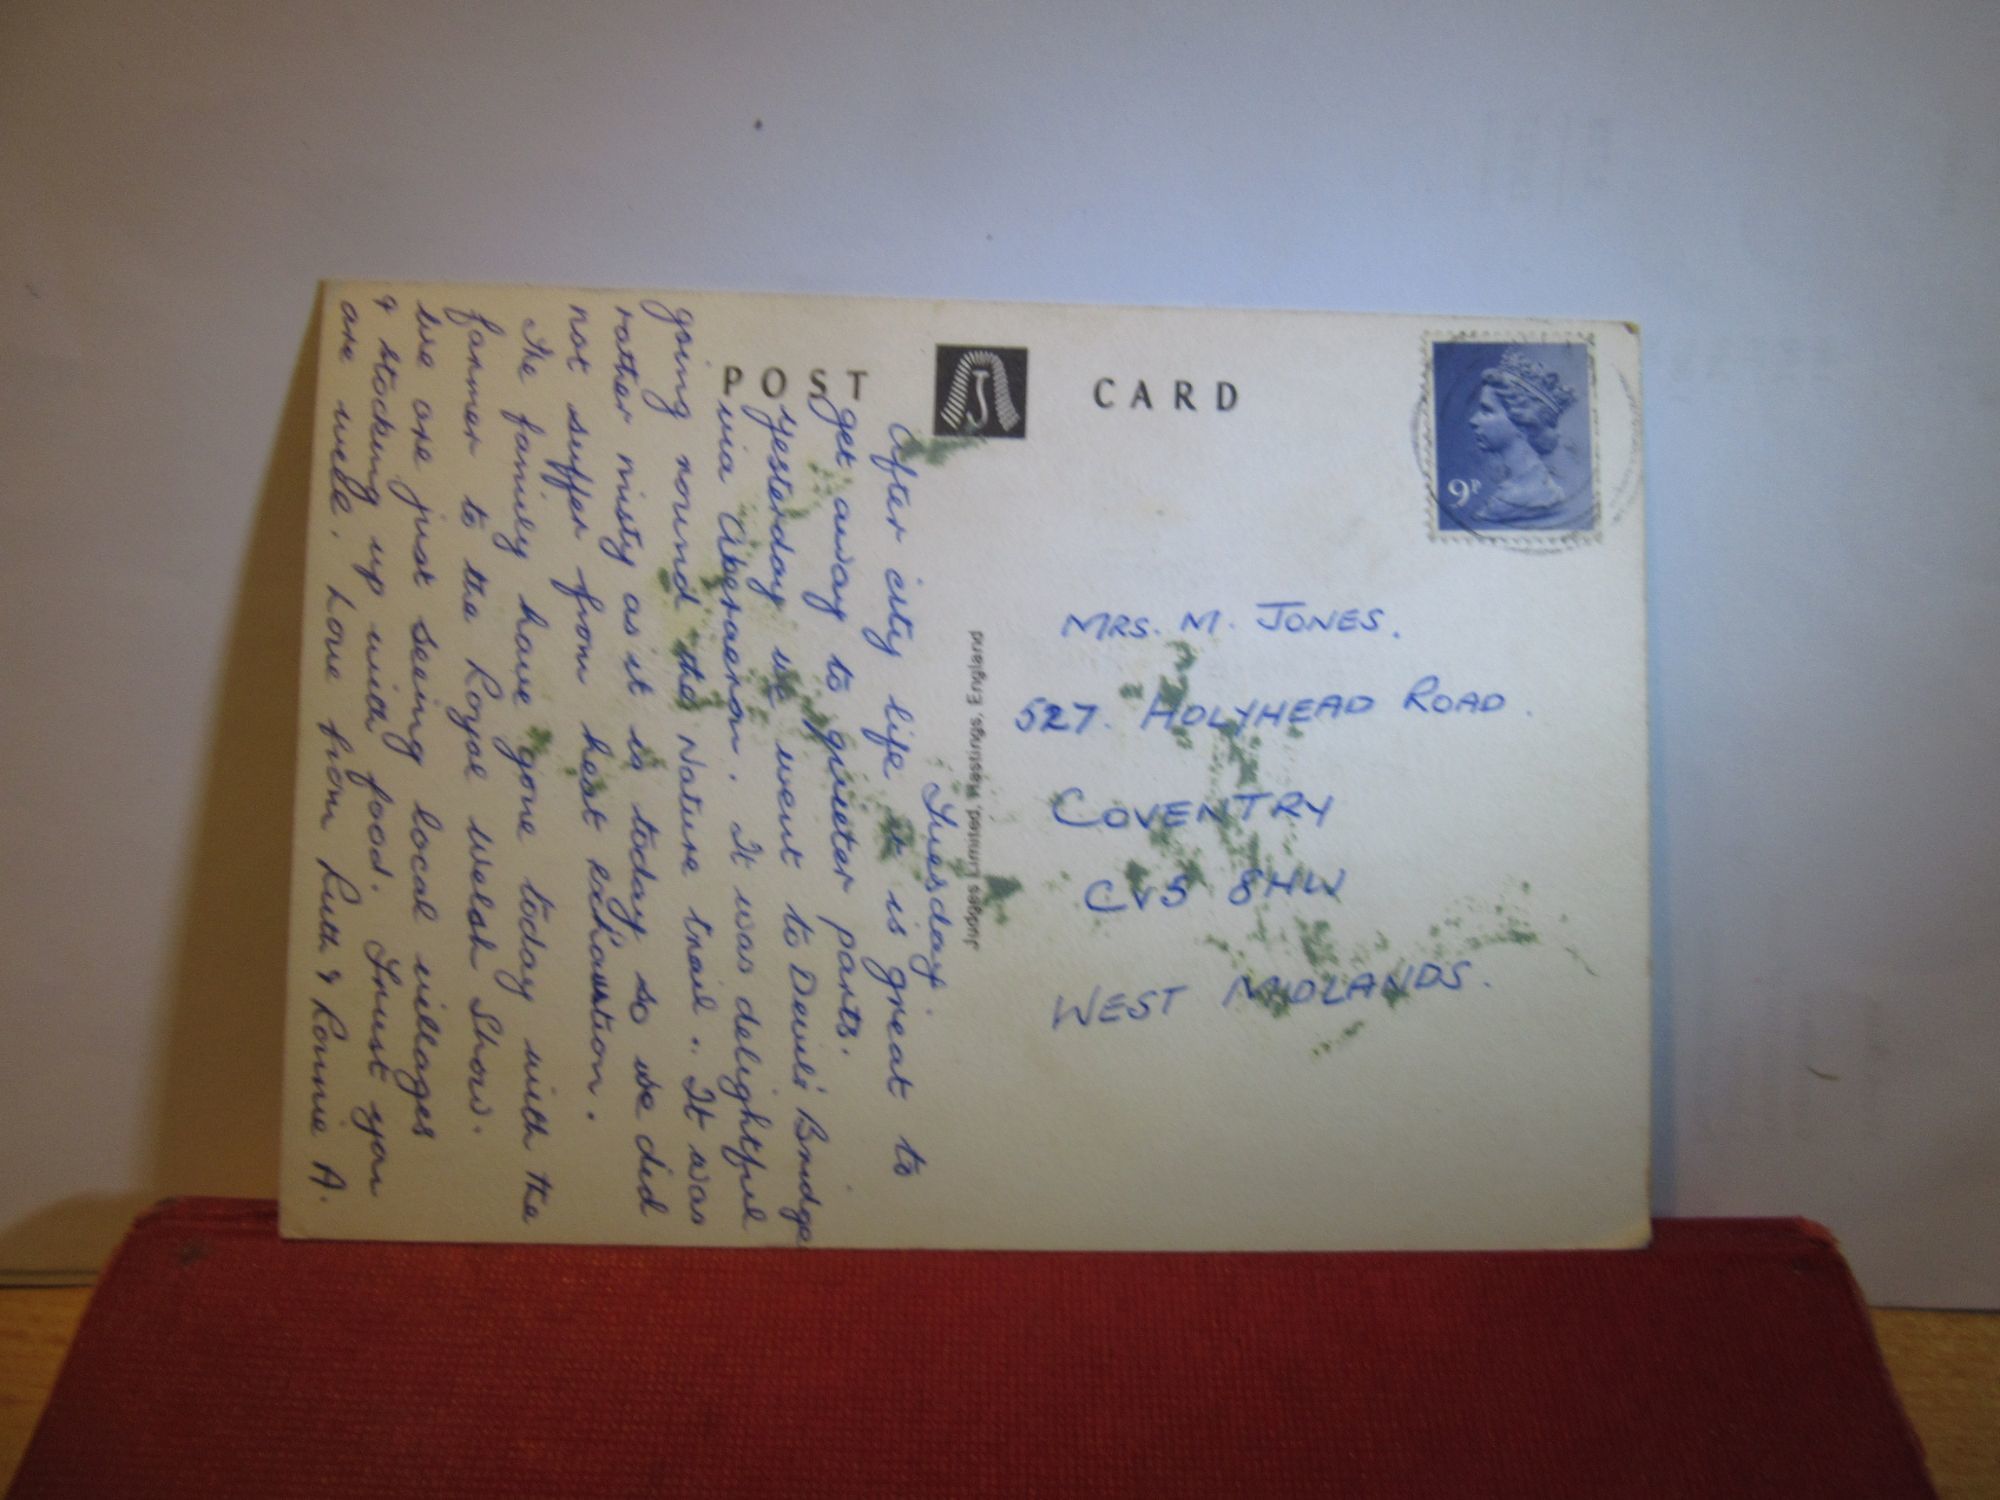 POST CARD
9P
Tuesday.
After city life it is great to
get away to quieter parts.
Yesterday we went to Devil's Bridge
via Aberaeron. It was delightful
going round the Nature trail. It was
rather misty as it is today so we did
not suffer from heat exhaustion.
The family have gone today with the
farmer to the Royal Welsh Show.
We are just seeing local villages
& stocking up with food. Trust you
are well. Love from Ruth & Ronnie A.
Judges Limited, Hastings, England
MRS. M. JONES.
527. HOLYHEAD ROAD.
COVENTRY
CV5 8HW
WEST MIDLANDS.